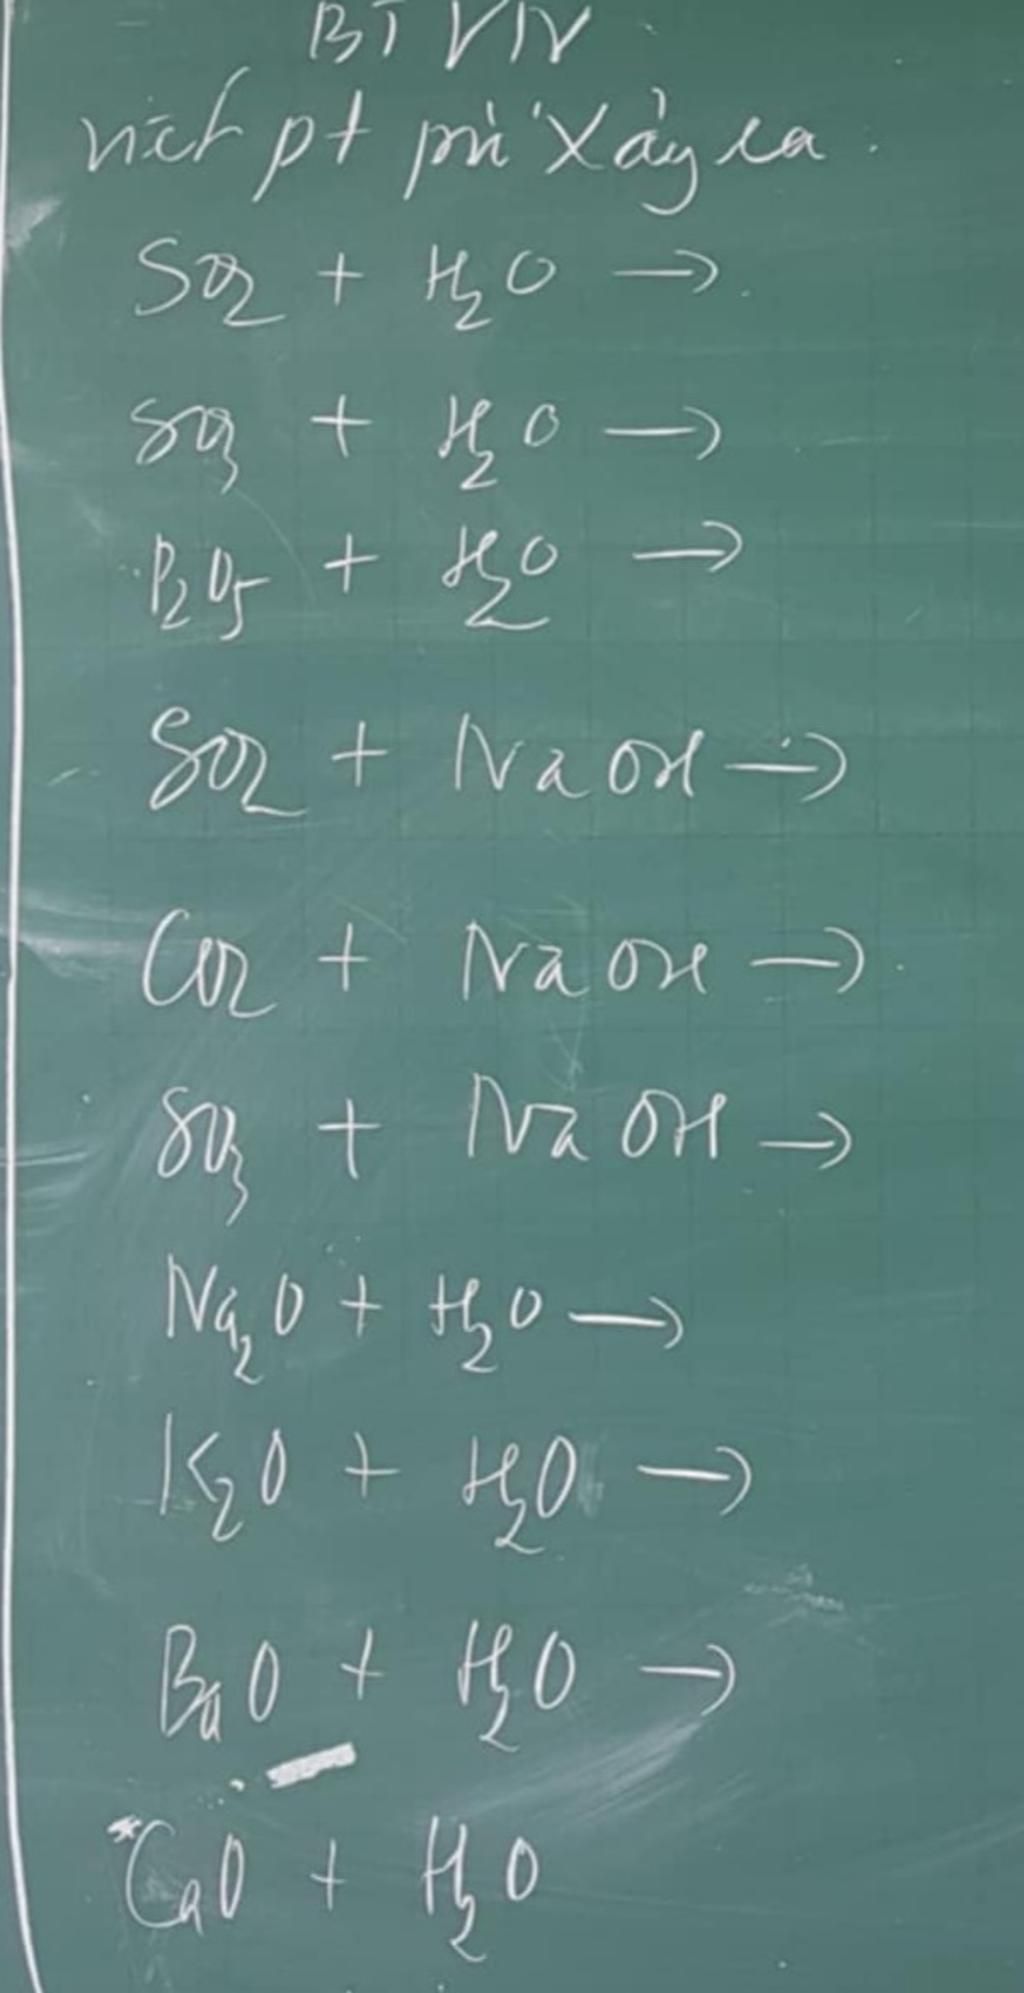 BT VIV
viết pt pứ xảy ra.
SO2 + H2O →
SO3 + H2O →
P2O5 + H2O →
SO2 + NaOH →
CO2 + NaOH →
SO3 + NaOH →
Na2O + H2O →
K2O + H2O →
BaO + H2O →
*CaO + H2O